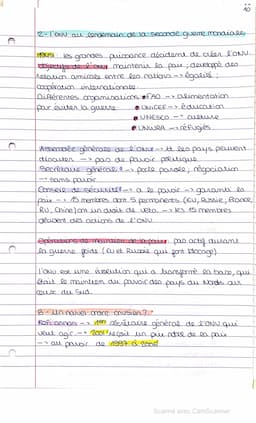 2- l'ONU au lendemain de la seconde guerre mondiale
1945 les grandes puissance décident de créer l'ONU
objectifs de l'ONU maintenir la paix ; développé des
relation amicales entre les nations --> égalité ;
coopération internationale
Différentes organisations • FAO --> alimentation
pour éviter la guerre • UNICEF --> éducation
• UNESCO --> culture
• UNWRA --> réfugiés
Assemblée générale de l'ONU --> tt les pays peuvent
discuter --> pas de pouvoir politique
Secrétaire générale : --> porte parole, négociation
--> sans pouvoir
Conseil de sécurité : --> a le pouvoir --> garantis la
paix --> 15 membres dont 5 permanents (EU, Russie, France,
RU, Chine) ont un droit de véto --> les 15 membres
des actions de l'ONU.
Opérations de maintien de la paix : pas actif durant
la guerre froide (EU et Russie qui font blocage)
l'ONU est une évolution qui a transformé la base, qui
était le maintien du pouvoir des pays du Nords sur
ceux du Sud.
B - Un
Kofi annan --> secrétaire général de l'ONU qui
veut agir --> 2001 reçoit un prix nobel de la paix
--> au pouvoir de 1997 à 2006
Scanné avec CamScanner